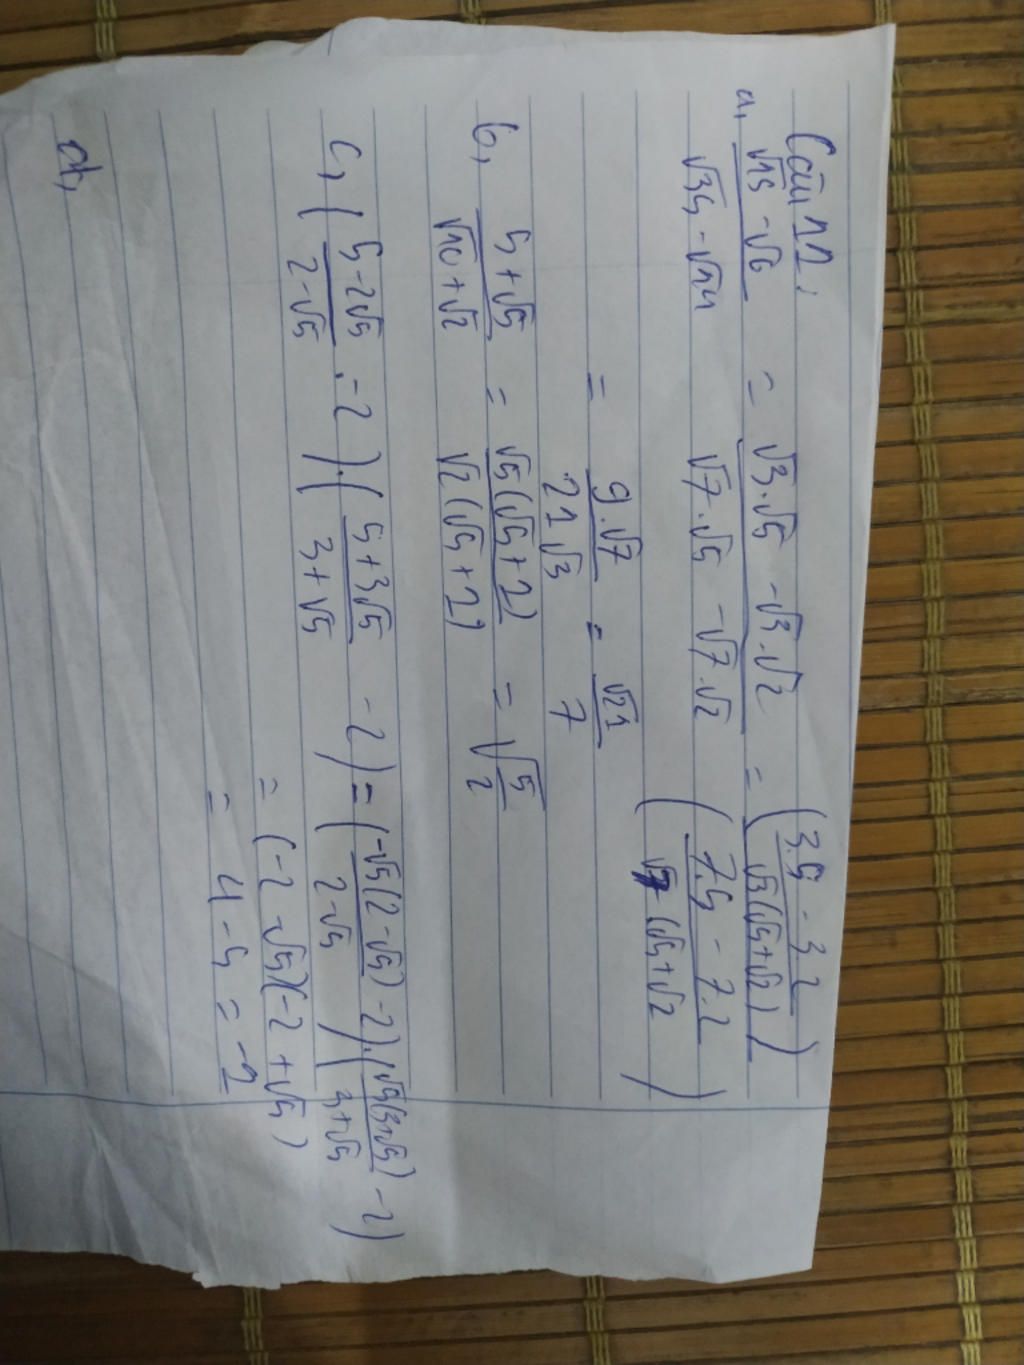 Câu 11:
a, √15 - √6 / √35 - √14 = √3.√5 - √3.√2 / √7.√5 - √7.√2 = (3.5 - 3.2 / √3(√5+√2)) / (7.5 - 7.2 / √7(√5+√2)
= 9.√7 / 21√3 = √21 / 7
b, 5+√5 / √10+√2 = √5(√5+1) / √2(√5+1) = √5/2
c, (5-2√5 / 2-√5 - 2).(5+3√5 / 3+√5 - 2) = (-√5(2-√5) / 2-√5 - 2).(√5(3+√5) / 3+√5 - 2)
= (-2-√5)(-2+√5)
= 4-5 = -1
d,